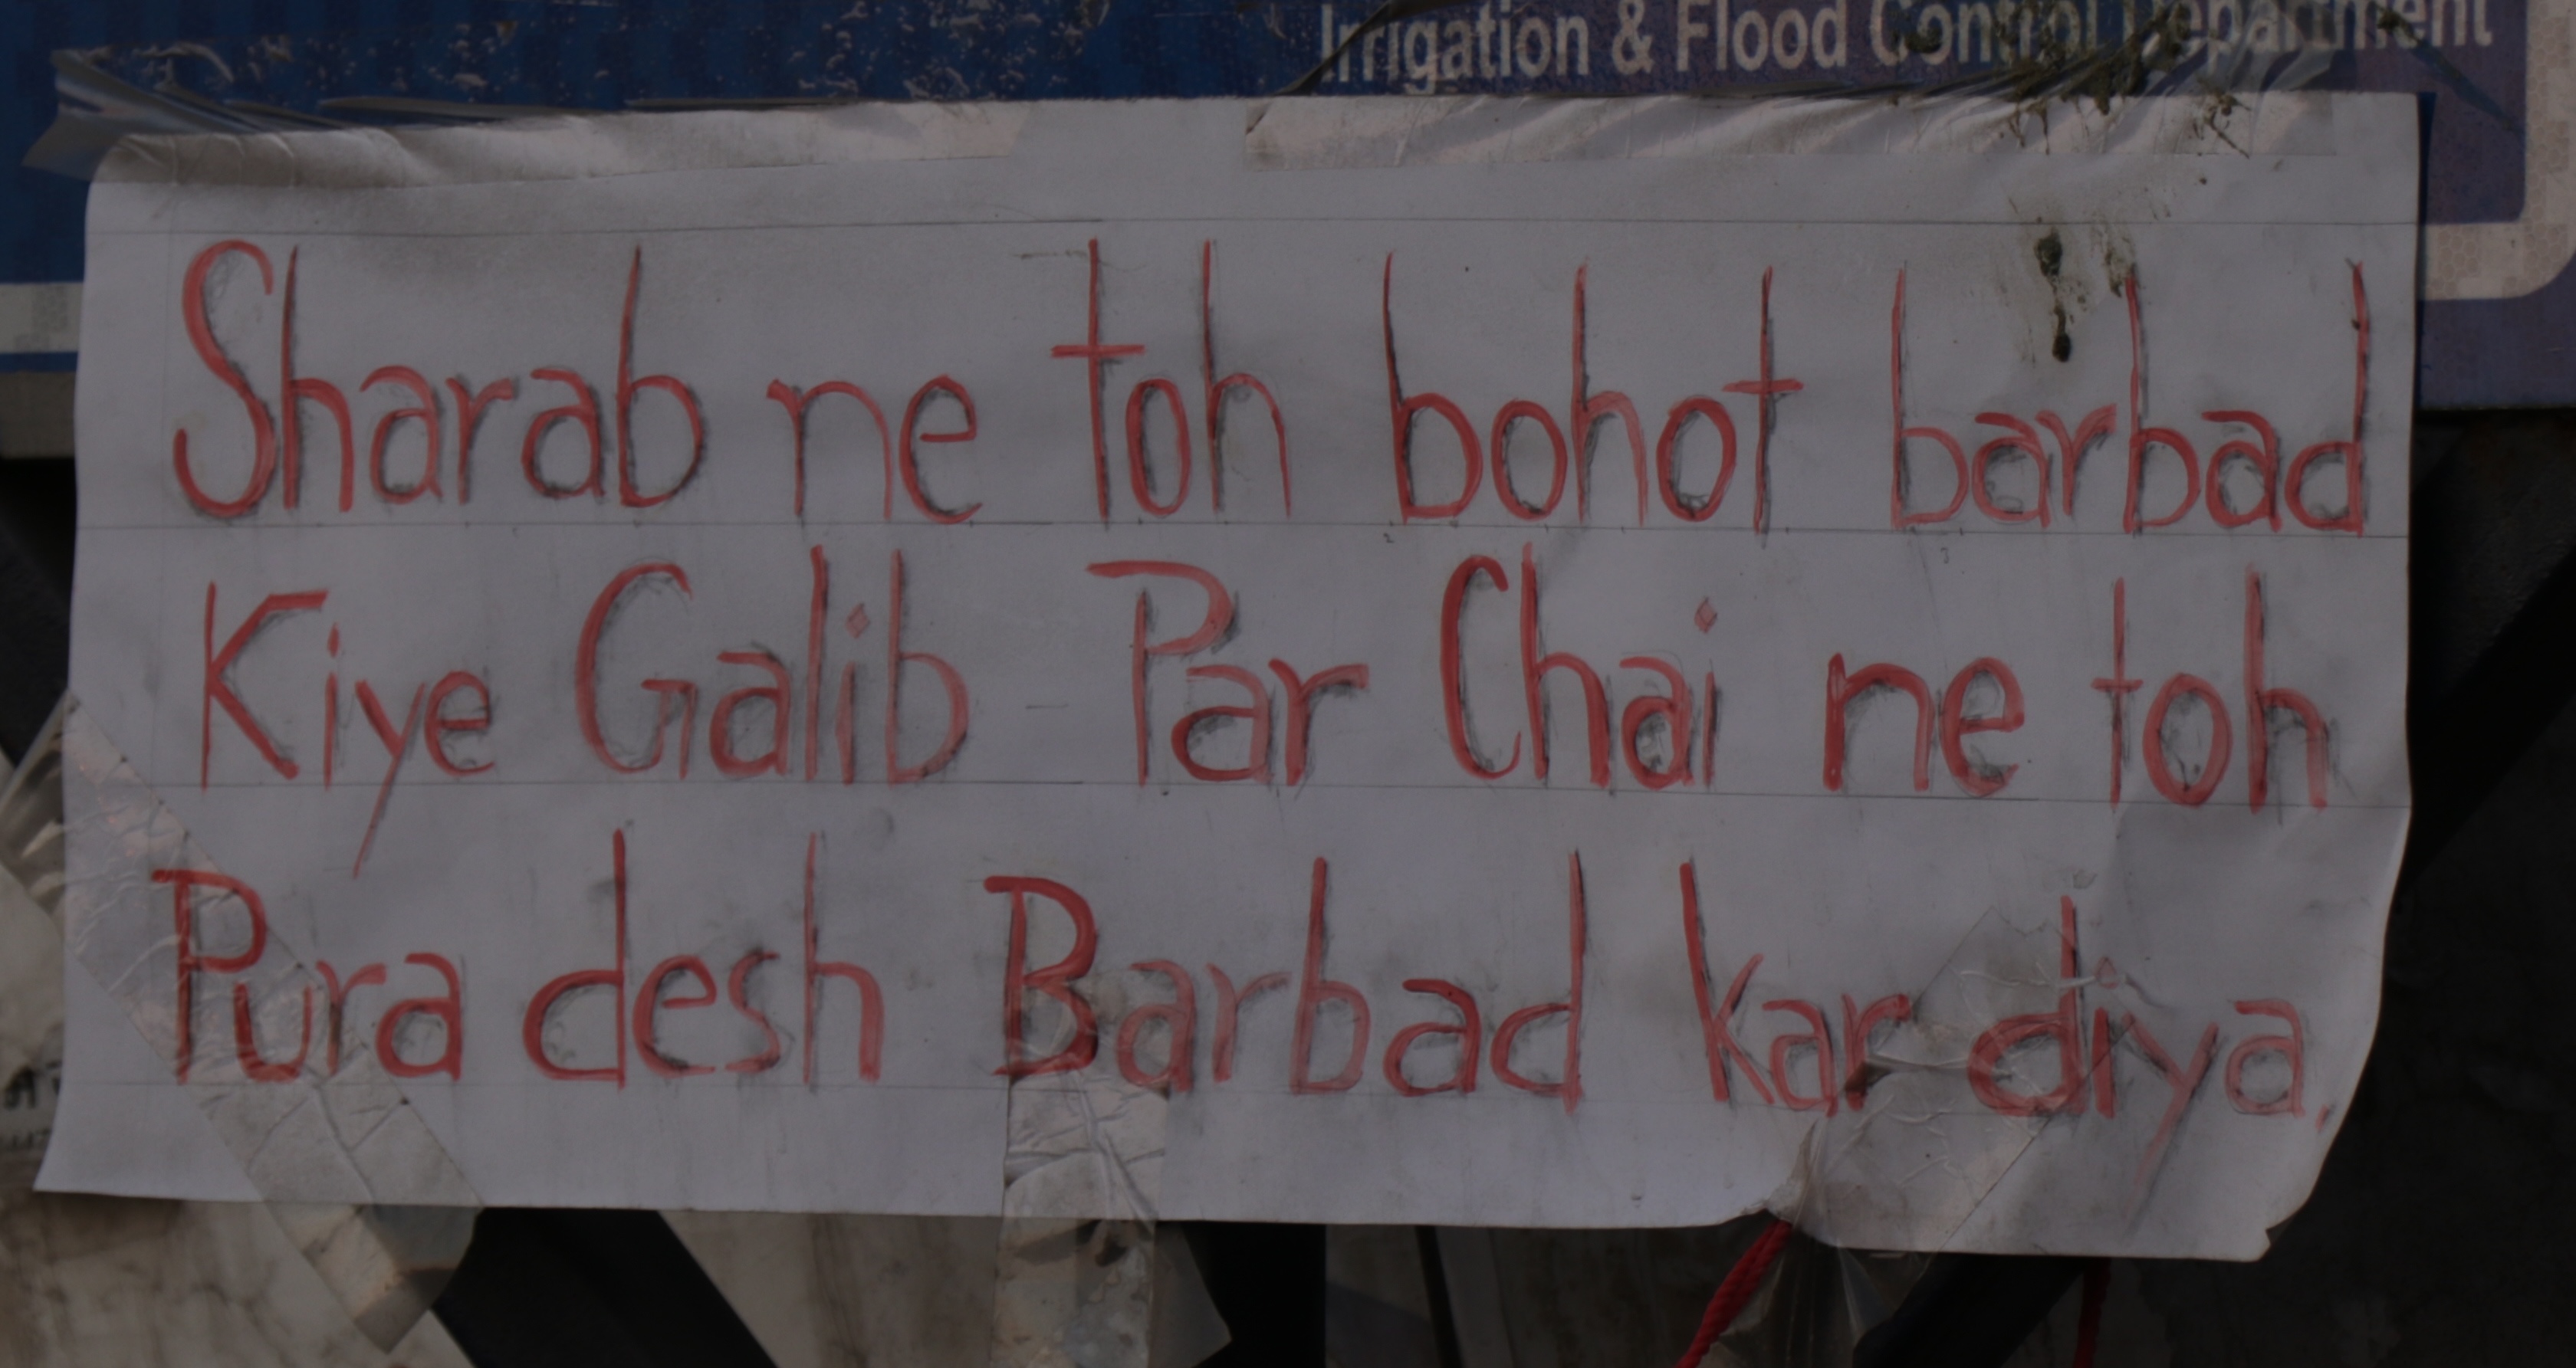 Irrigation & Flood Control Department
Sharab ne toh bohot barbad
Kiye Galib - Par Chai ne toh
Pura desh Barbad kar diya.